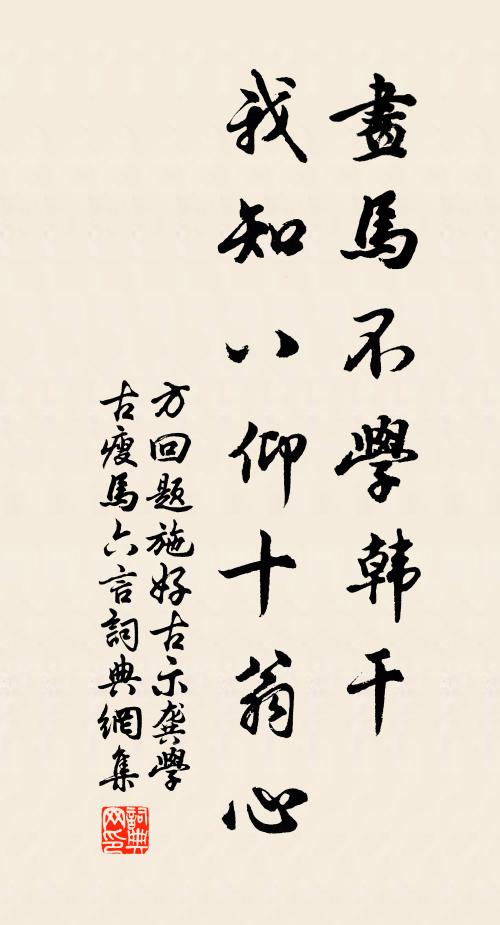 畫馬不學韩干
我知八仰十翁心
方回题施好古示龚學
古瘦馬六言詞典網集
詞典網印